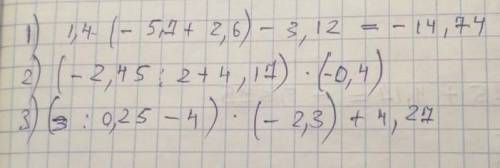 1) 1,4·(-5,7+2,6)-3,12 = -14,74
2) (-2,45:2+4,17)·(-0,4)
3) (3:0,25-4)·(-2,3)+4,27